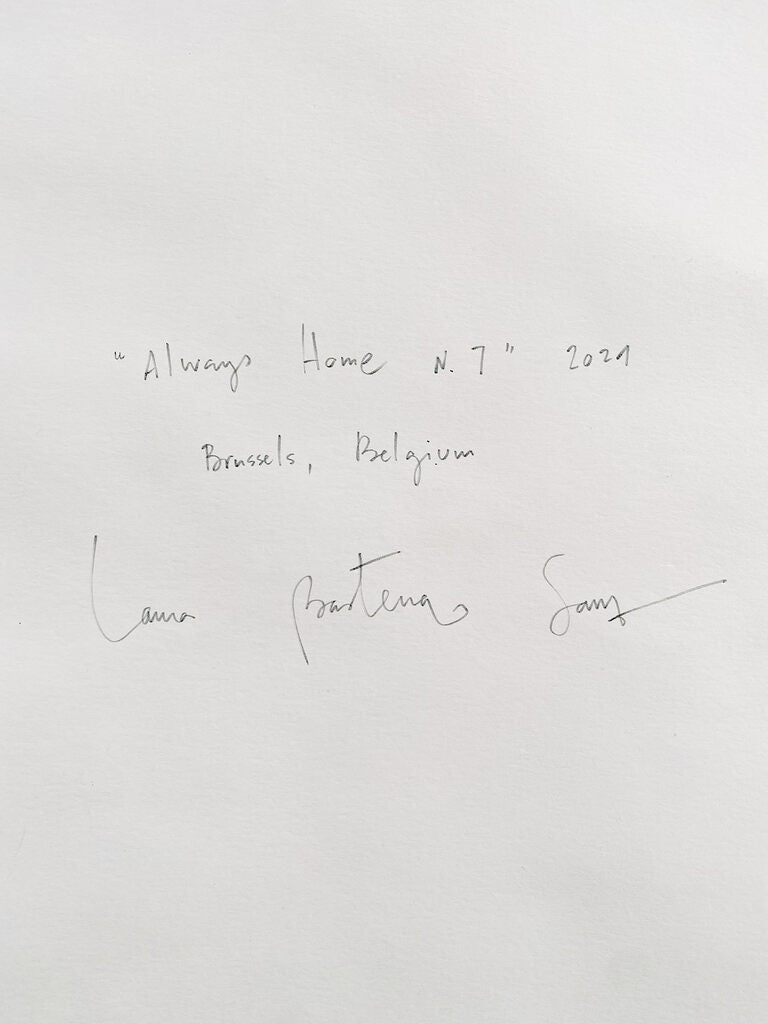 "Always Home N. 7" 2021
Brussels, Belgium
Laura Bastena Sanz